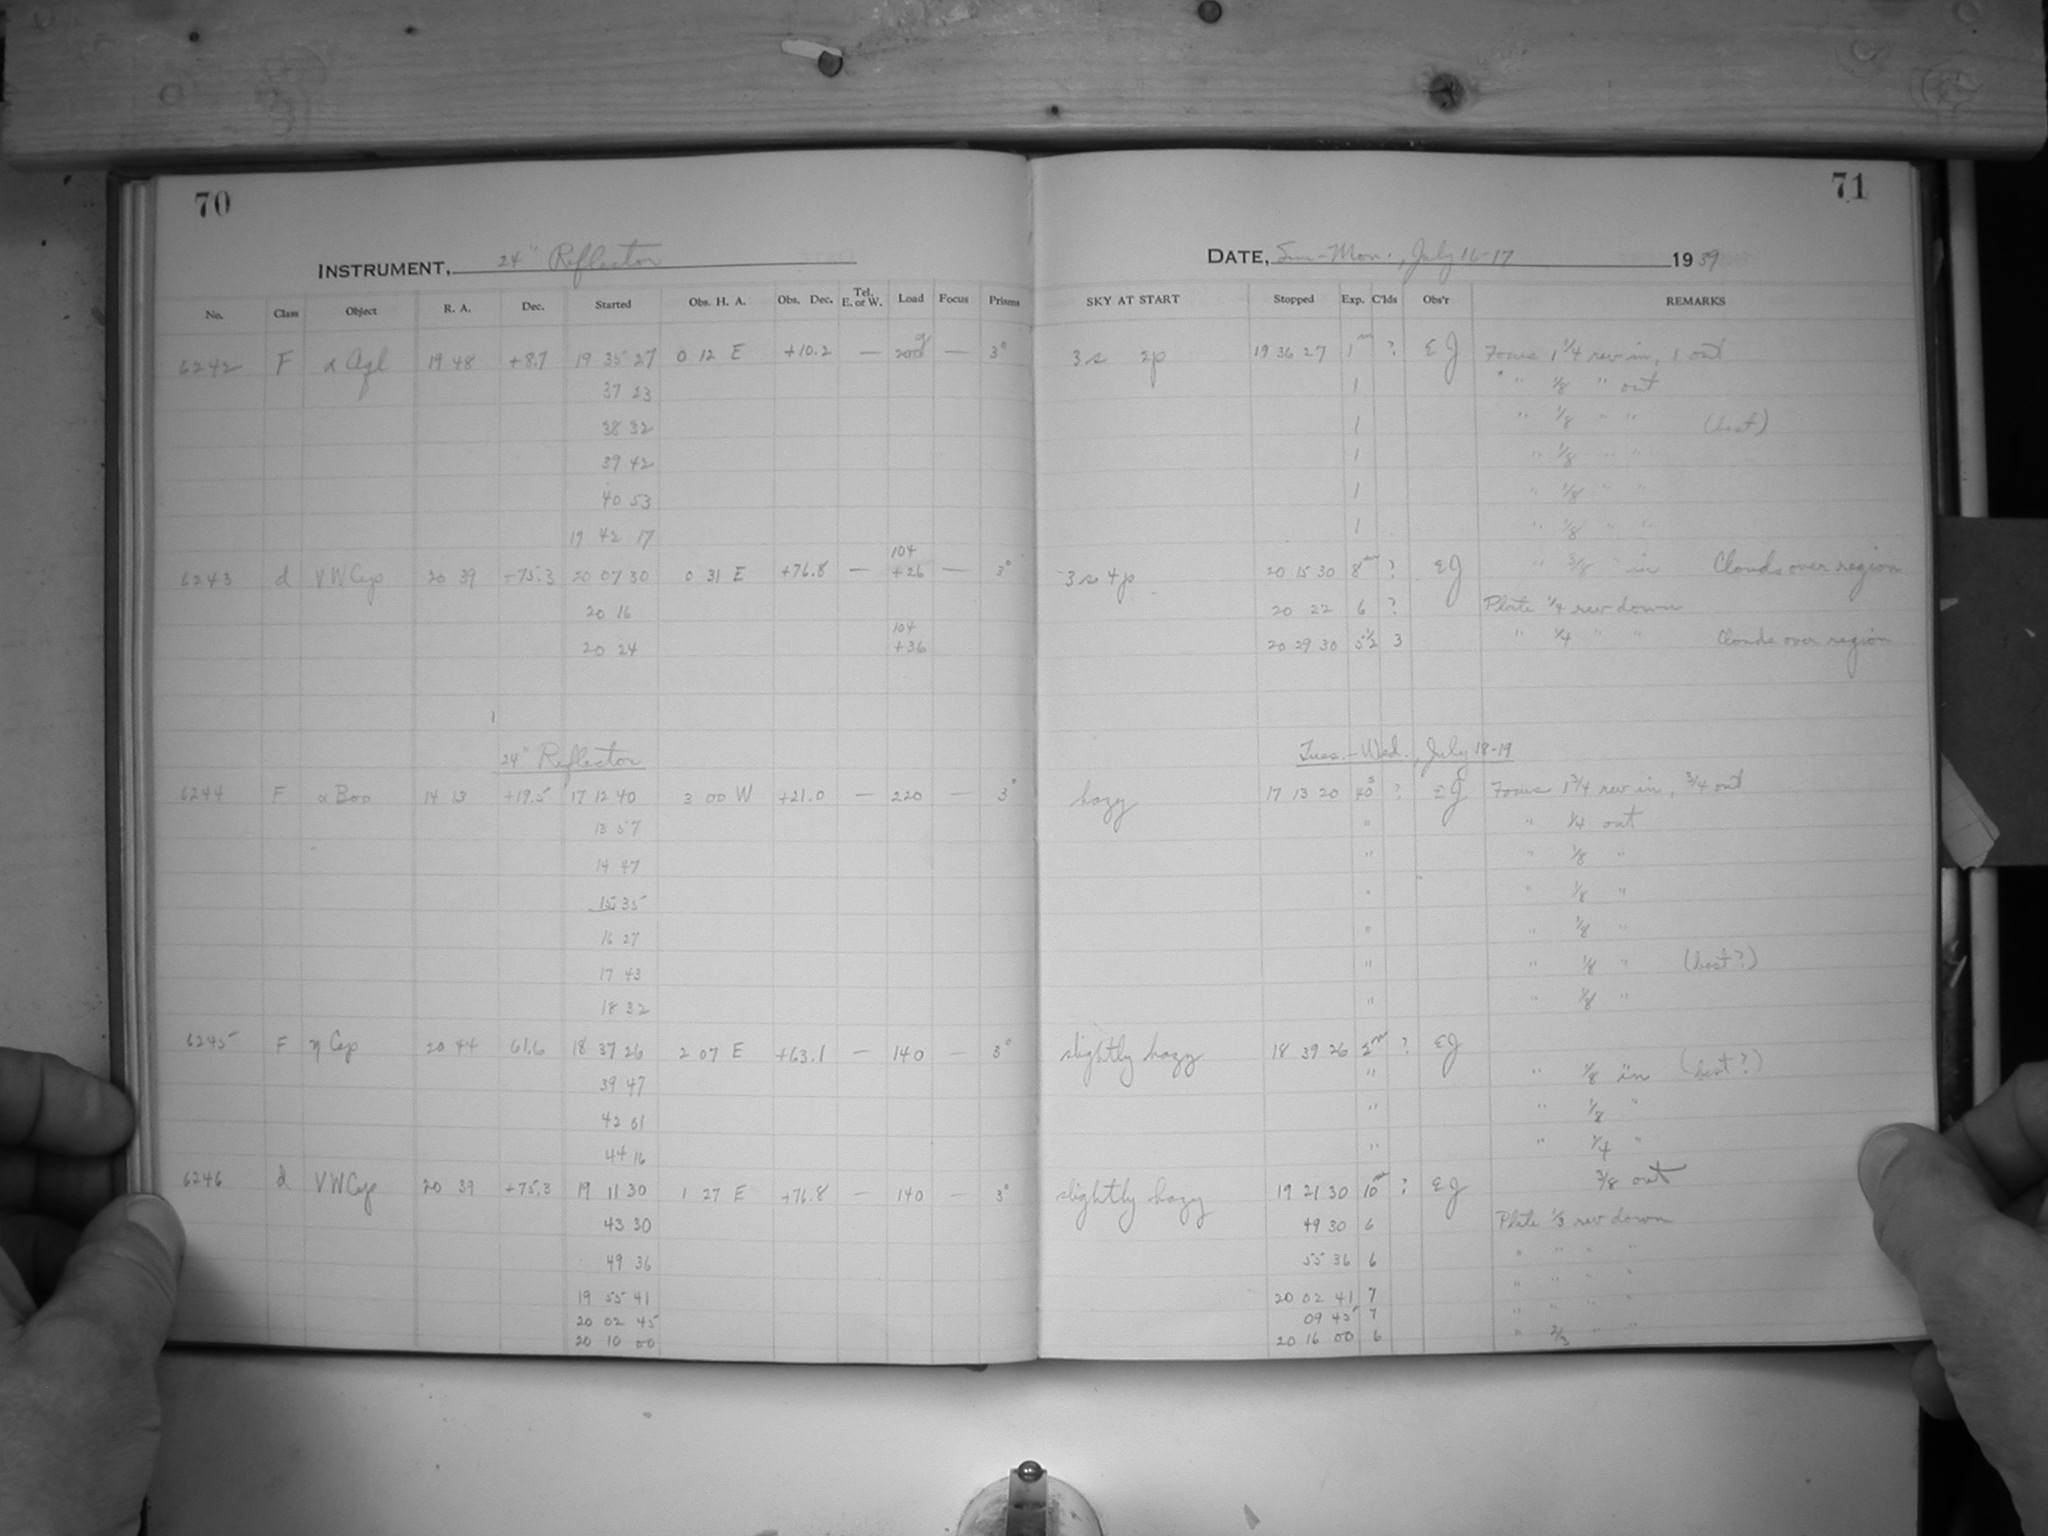 70
71
INSTRUMENT, 24" Reflector
DATE, Sun-Mon., July 16-17 1939
No. Class Object R. A. Dec. Started Obs. H. A. Obs. Dec. Tel. E. or W. Load Focus Prisms SKY AT START Stopped Exp. C'lds Obs'r REMARKS
6242 F α Aql 19 48 +8.7 19 35 27 0 12 E +10.2 — 200g — 3° 3s 2p 19 36 27 1m ? EJ Focus 1 1/4 rev in, 1 out
37 23 1 " " 1/8 " out
38 32 1 " 1/8 " " (best)
39 42 1 " 1/8 " "
40 53 1 " 1/8 " "
19 42 17 1 " 1/8 " "
6243 d VW Cep 20 39 +75.3 20 07 30 0 31 E +76.8 — 104 +26 — 3° 3s 4p 20 15 30 8m ? EJ " 3/8 " in Clouds over region
20 16 20 22 6 ? Plate 1/4 rev down
20 24 104 +36 20 29 30 5 1/2 3 " 1/4 " " Clouds over region
24" Reflector Tues.-Wed., July 18-19
6244 F α Boo 14 13 +19.5 17 12 40 3 00 W +21.0 — 220 — 3° hazy 17 13 20 40s ? EJ Focus 1 3/4 rev in, 3/4 out
13 57 " " 1/4 out
14 47 " " 1/8 "
15 35 " " 1/8 "
16 27 " " 1/8 "
17 43 " " 1/8 " (best?)
18 32 " " 1/8 "
6245 F η Cep 20 44 61.6 18 37 26 2 07 E +63.1 — 140 — 3° slightly hazy 18 39 26 2m ? EJ
39 47 " " 1/8 in (best?)
42 01 " " 1/8 "
44 16 " " 1/4 "
6246 d VW Cep 20 39 +75.3 19 11 30 1 27 E +76.8 — 140 — 3° slightly hazy 19 21 30 10m ? EJ 3/8 out
43 30 49 30 6 Plate 1/3 rev down
49 36 55 36 6 " " " "
19 55 41 20 02 41 7 " " " "
20 02 45 09 45 7 " " " "
20 10 00 20 16 00 6 " 2/3 " "